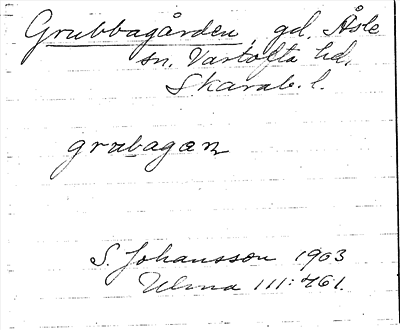 Grubbagården, gd, Åsle
sn, Vartofta hd,
Skarab. l.
grubagan
S. Johansson 1903
Ulma 111:461.